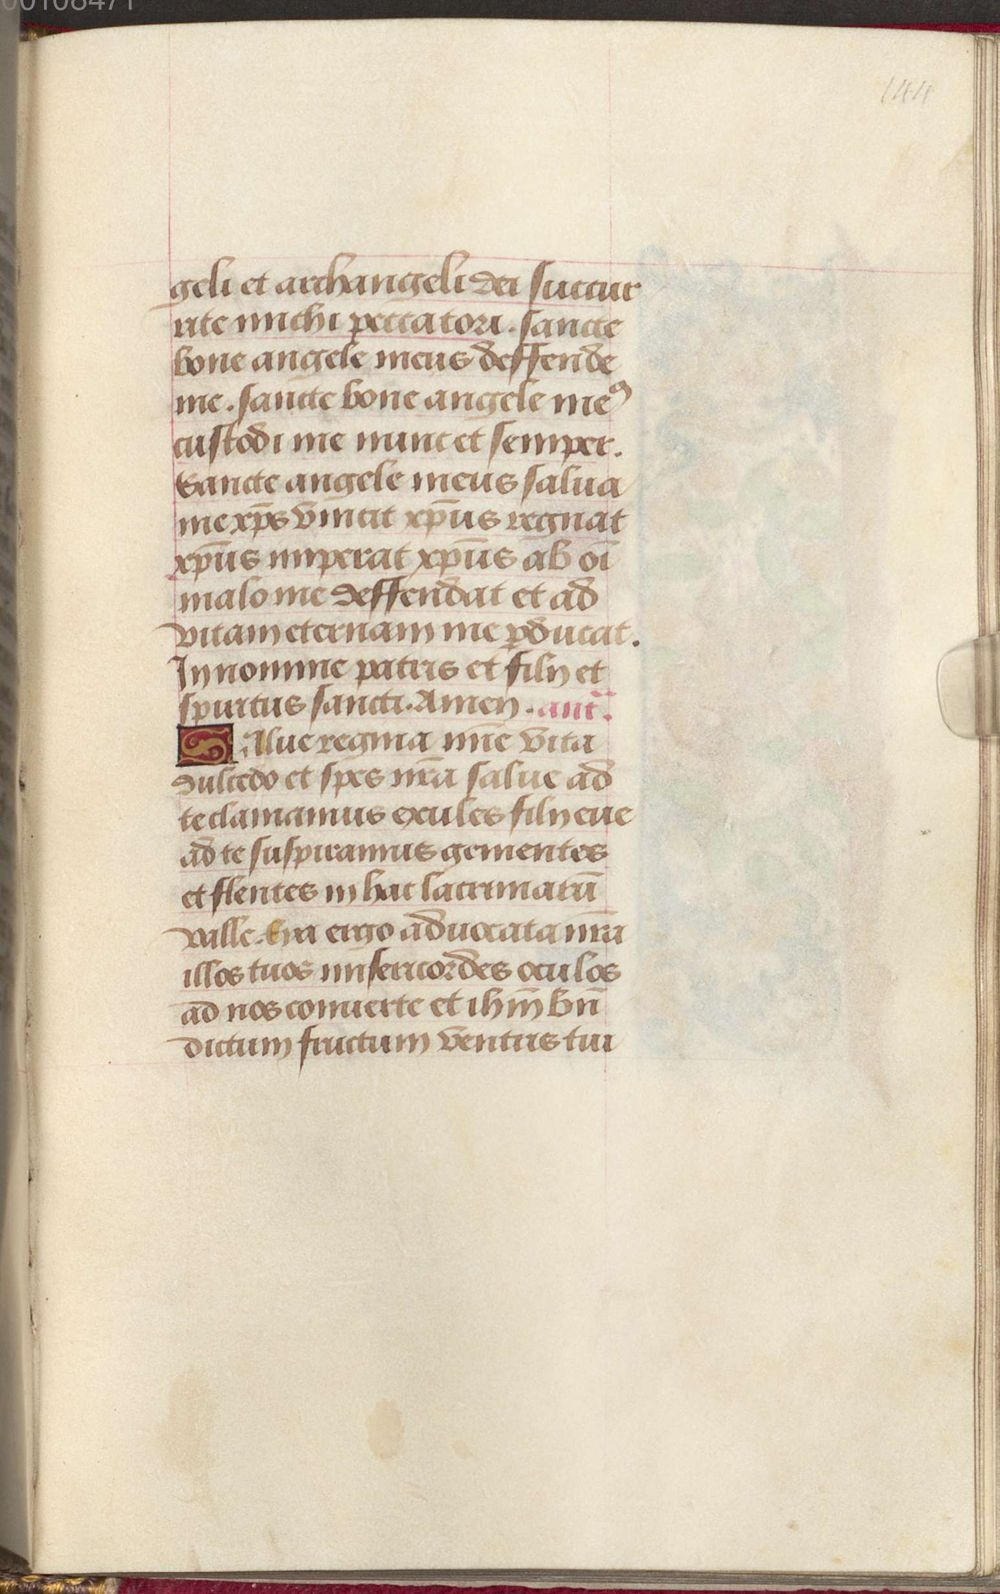 00108471
144
geli et archangeli dei succur
rite michi peccatori. sancte
bone angele meus deffende
me. sancte bone angele meꝰ
custodi me nunc et semper.
Sancte angele meus salua
me xp̄s vincit xp̄us regnat
xp̄us imperat xp̄us ab oī
malo me deffendat et ad
vitam eternam me ꝑducat.
In nomine patris et filii et
spiritus sancti. Amen. ant̄.
Salue regina mie vita
dulcedo et spes nr̄a salue ad
te clamamus exules filii eue
ad te suspiramus gementes
et flentes in hac lacrimarū
valle. Eya ergo aduocata nr̄a
illos tuos misericordes oculos
ad nos conuerte et ihm̄ bn̄
dictum fructum ventris tui